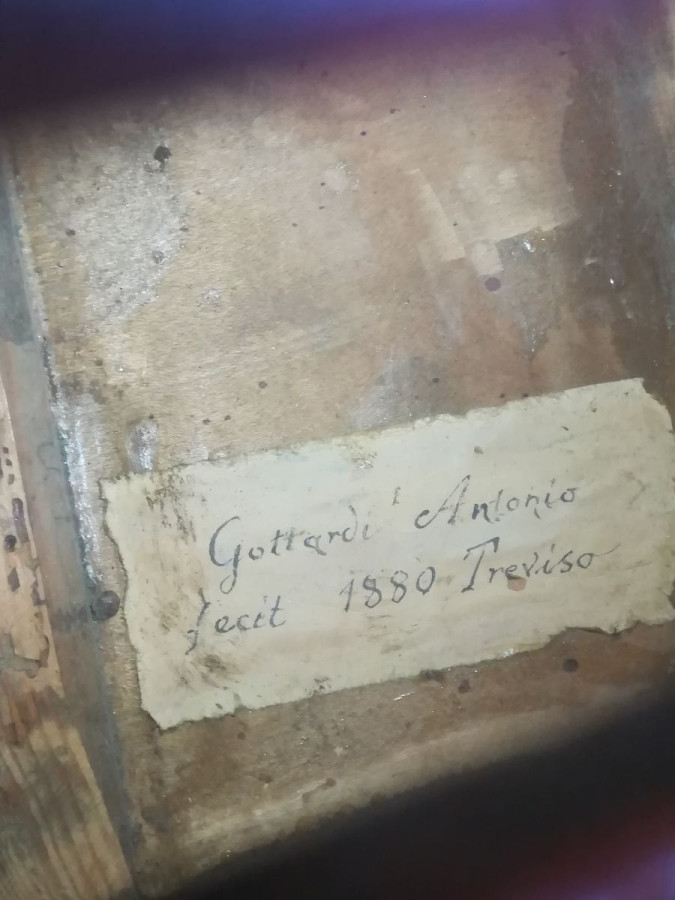 Gottardi Antonio
fecit 1880 Treviso